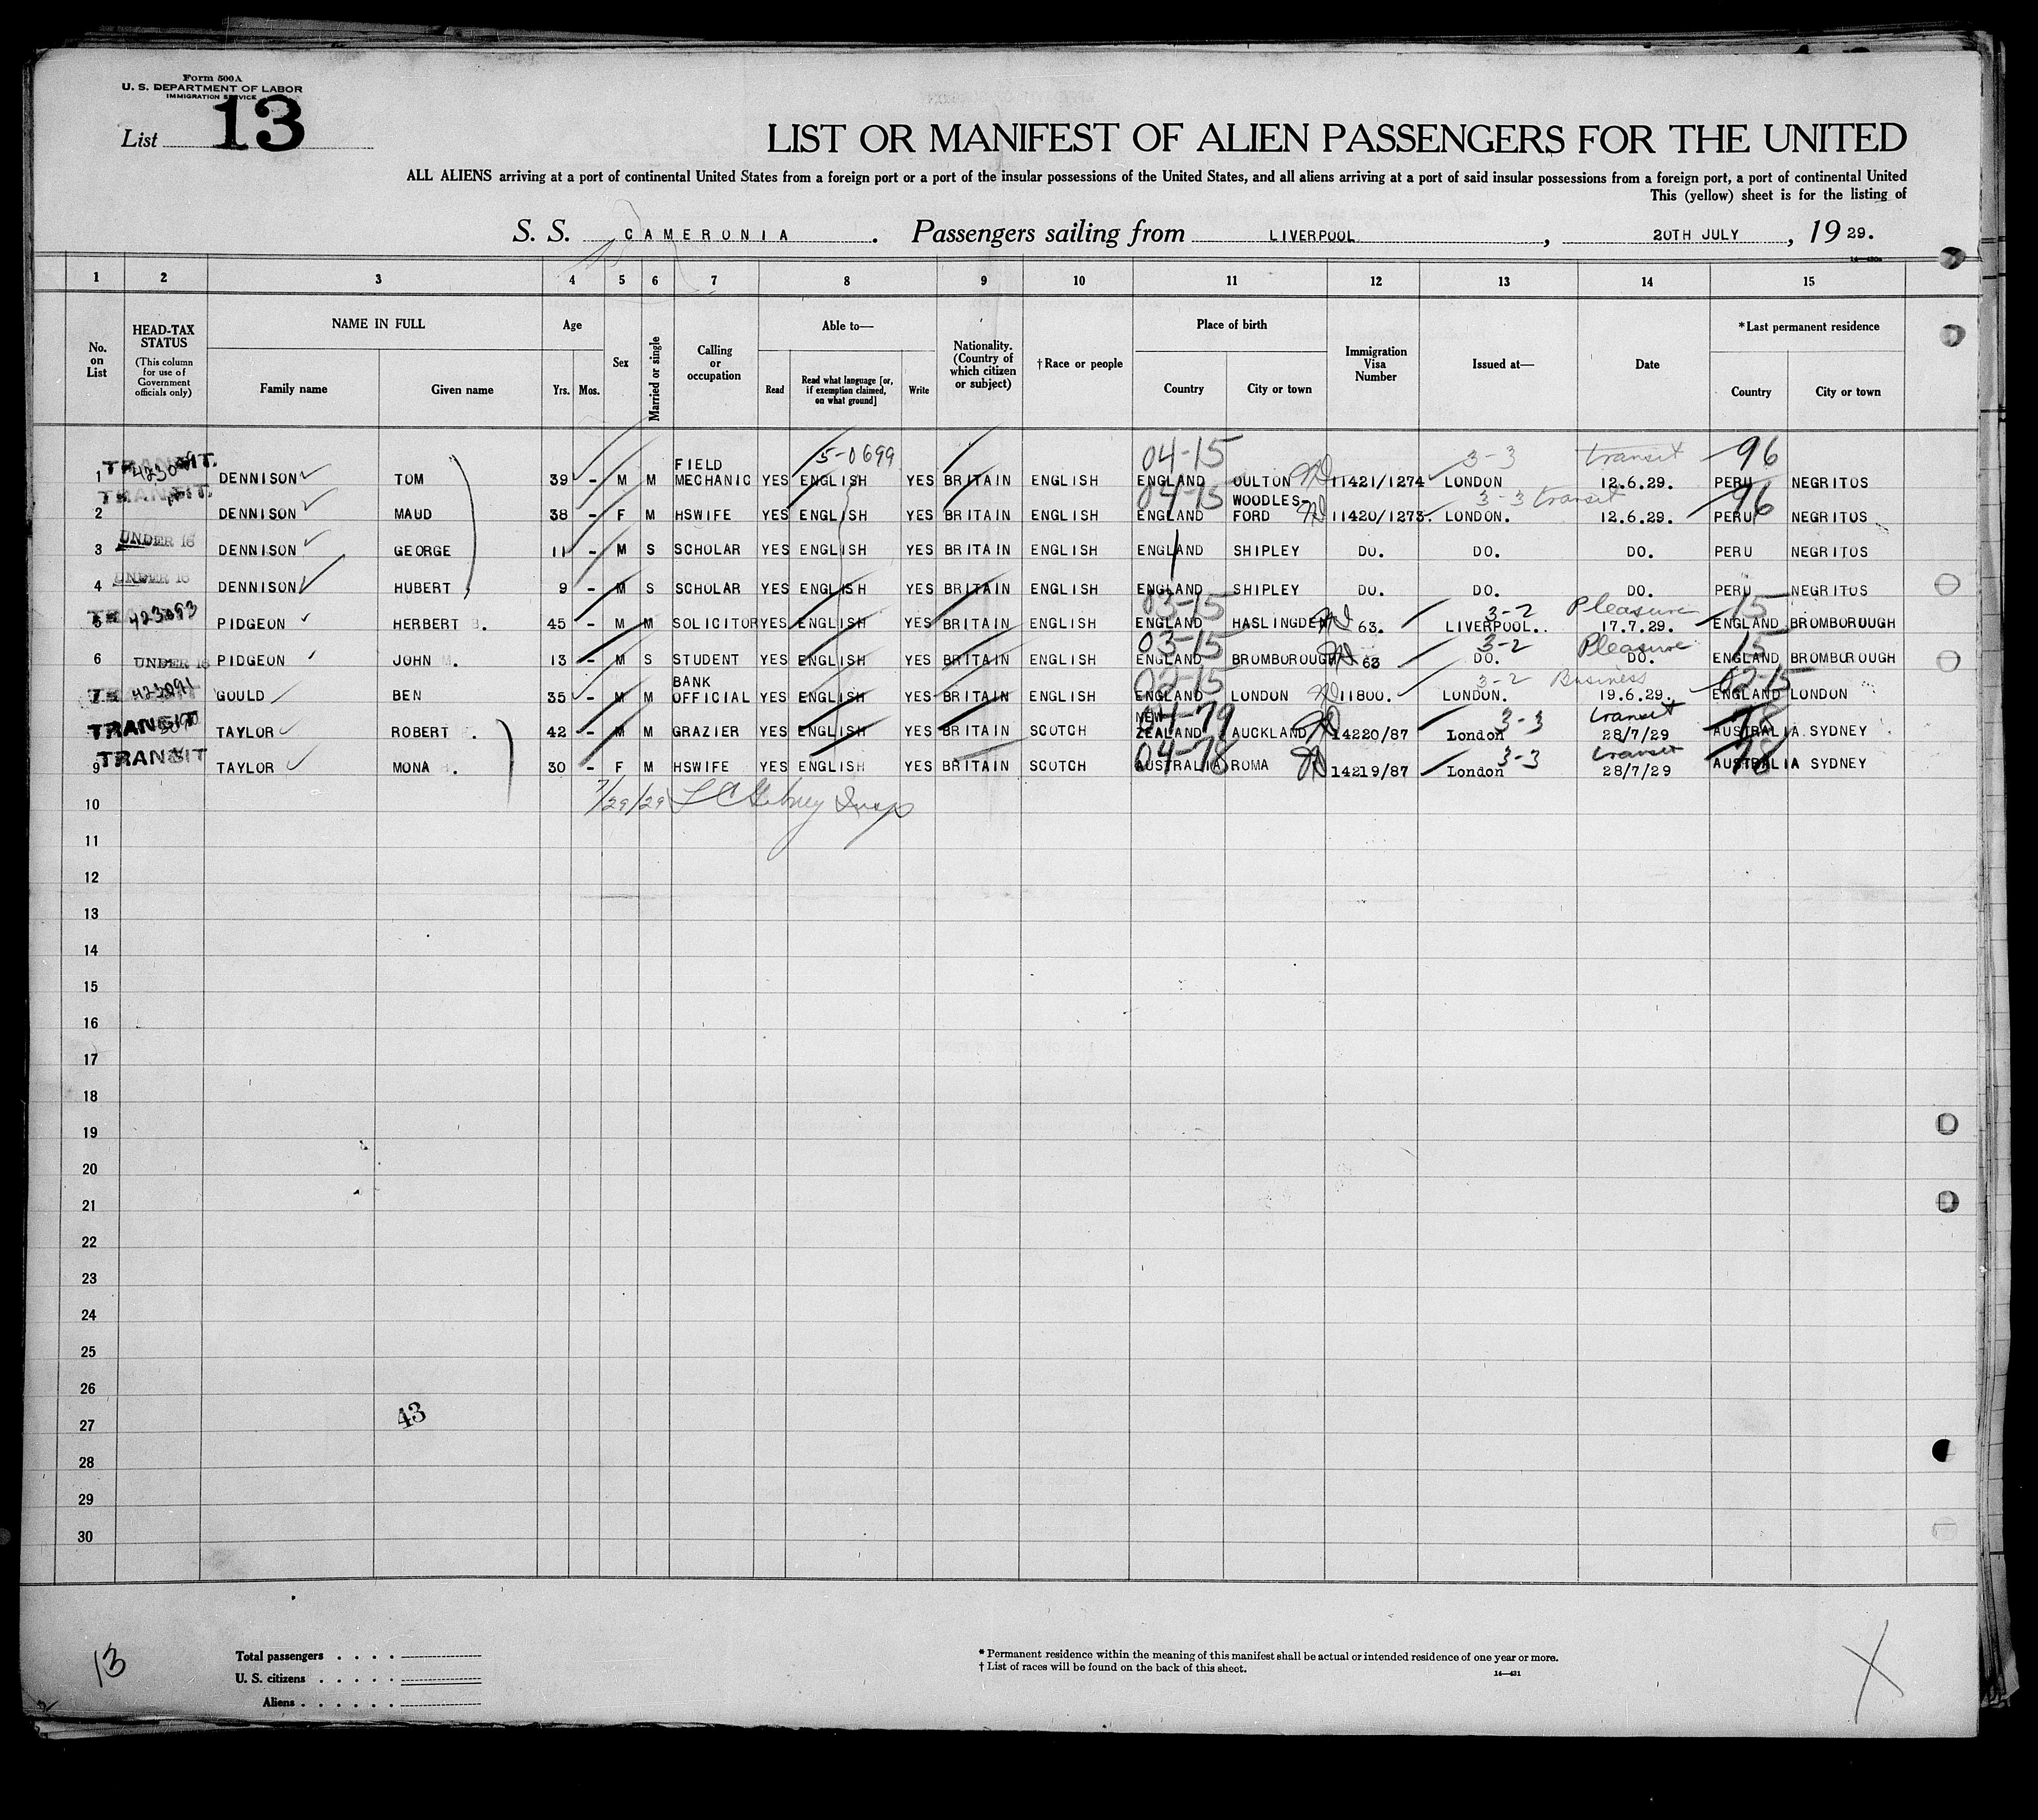 Form 500A
U. S. DEPARTMENT OF LABOR
IMMIGRATION SERVICE
List 13
LIST OR MANIFEST OF ALIEN PASSENGERS FOR THE UNITED
ALL ALIENS arriving at a port of continental United States from a foreign port or a port of the insular possessions of the United States, and all aliens arriving at a port of said insular possessions from a foreign port, a port of continental United
This (yellow) sheet is for the listing of
S. S. CAMERONIA . Passengers sailing from LIVERPOOL , 20TH JULY , 19 29.
1 2 3 4 5 6 7 8 9 10 11 12 13 14 15
No. on List
HEAD-TAX STATUS
(This column for use of Government officials only)
NAME IN FULL
Family name Given name
Age
Yrs. Mos.
Sex
Married or single
Calling or occupation
Able to—
Read Read what language [or, if exemption claimed, on what ground] Write
Nationality. (Country of which citizen or subject)
† Race or people
Place of birth
Country City or town
Immigration Visa Number
Issued at—
Date
*Last permanent residence
Country City or town
5-0699 04-15 3-3 transit 96
1 TRANSIT. DENNISON TOM 39 - M M FIELD MECHANIC YES ENGLISH YES BRITAIN ENGLISH ENGLAND OULTON 11421/1274 LONDON 12.6.29. PERU NEGRITOS
04-15 3-3 transit 96
2 TRANSIT. DENNISON MAUD 38 - F M HSWIFE YES ENGLISH YES BRITAIN ENGLISH ENGLAND WOODLES-FORD 11420/1273. LONDON. 12.6.29. PERU NEGRITOS
3 UNDER 16 DENNISON GEORGE 11 - M S SCHOLAR YES ENGLISH YES BRITAIN ENGLISH ENGLAND SHIPLEY DO. DO. DO. PERU NEGRITOS
4 UNDER 16 DENNISON HUBERT 9 - M S SCHOLAR YES ENGLISH YES BRITAIN ENGLISH ENGLAND SHIPLEY DO. DO. DO. PERU NEGRITOS
03-15 3-2 Pleasure 15
5 423093 PIDGEON HERBERT . 45 - M M SOLICITOR YES ENGLISH YES BRITAIN ENGLISH ENGLAND HASLINGDEN 63. LIVERPOOL.. 17.7.29. ENGLAND BROMBOROUGH
03-15 3-2 Pleasure 15
6 UNDER 16 PIDGEON JOHN . 13 - M S STUDENT YES ENGLISH YES BRITAIN ENGLISH ENGLAND BROMBOROUGH 63 DO. DO. ENGLAND BROMBOROUGH
02-15 3-2 Business 02-15
423091 GOULD BEN 35 - M M BANK OFFICIAL YES ENGLISH YES BRITAIN ENGLISH ENGLAND LONDON 11800. LONDON. 19.6.29. ENGLAND LONDON
04-79 3-3 transit 78
TRANSIT TAYLOR ROBERT . 42 - M M GRAZIER YES ENGLISH YES BRITAIN SCOTCH NEW ZEALAND AUCKLAND 14220/87 London 28/7/29 AUSTRALIA. SYDNEY
04-78 3-3 transit 78
9 TRANSIT TAYLOR MONA . 30 - F M HSWIFE YES ENGLISH YES BRITAIN SCOTCH AUSTRALIA ROMA 14219/87 London 28/7/29 AUSTRALIA SYDNEY
10 7/29/29
11
12
13
14
15
16
17
18
19
20
21
22
23
24
25
26
27 43
28
29
30
13
Total passengers . . . .
U. S. citizens . . . . .
Aliens . . . . . .
* Permanent residence within the meaning of this manifest shall be actual or intended residence of one year or more.
† List of races will be found on the back of this sheet.
14—431
X